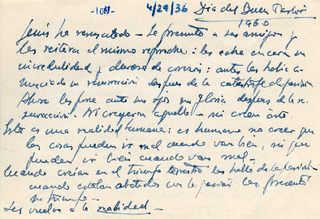 -108-
4/29/36 Día del Buen Pastor
1960
Jesús ha resucitado - Se presenta a sus amigos y
les reitera el mismo reproche: les echa en cara su
incredulidad y dureza de corazón: antes les había a-
nunciado su resurrección después de la catástrofe de la pasión
Ahora les pone ante sus ojos su gloria después de la re-
surrección. Ni creyeron aquello - ni creen esto
Esto es una realidad humana: es humano no creer que
las cosas pueden ir mal cuando van bien, ni que
pueden ir bien cuando van mal.
Cuando creían en el triunfo terrestre les habla de la pasión
cuando estaban abatidos con la pasión les presenta
su triunfo -
Les vuelve a la realidad -